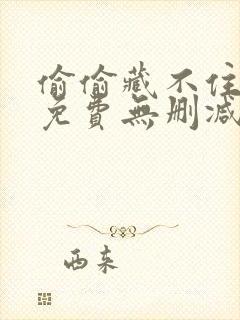 偷偷藏不住
免費無删减
西来